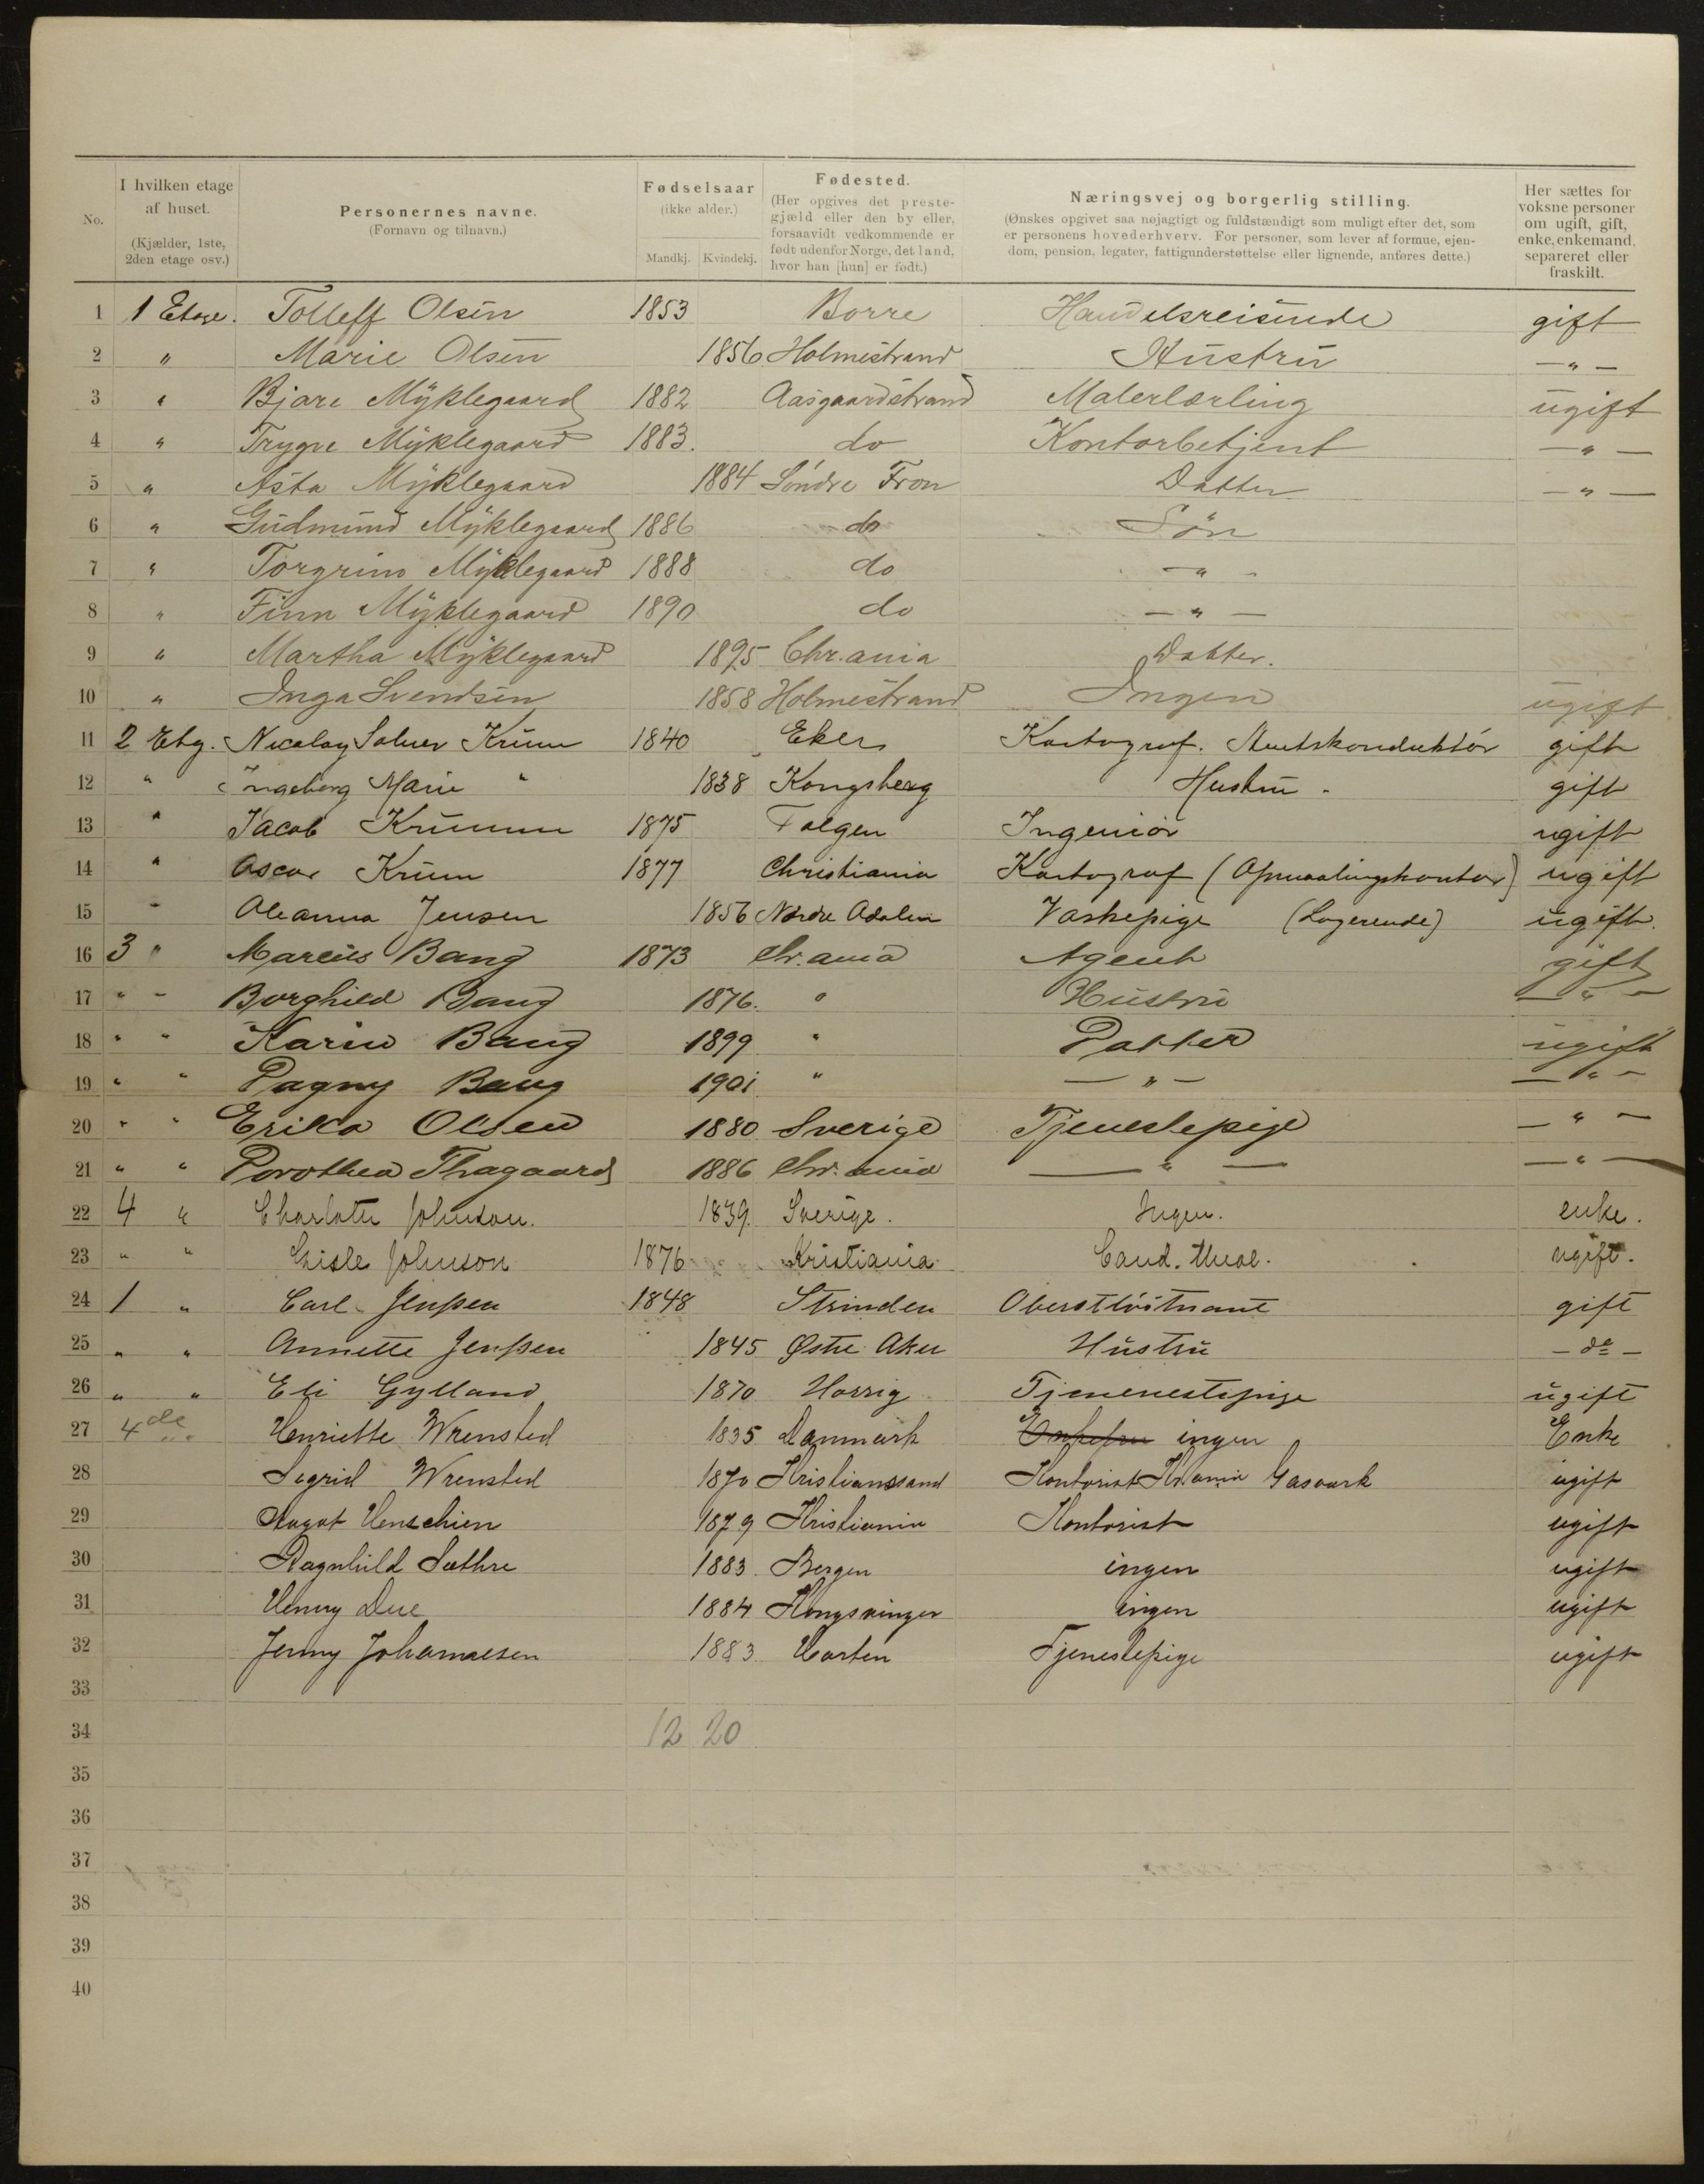 No. I hvilken etage af huset. (Kjælder, 1ste, 2den etage osv.) Personernes navne. (Fornavn og tilnavn.) Fødselsaar (ikke alder.) Mandkj. Kvindekj. Fødested. (Her opgives det prestegjæld eller den by eller, forsaavidt vedkommende er født udenfor Norge, det land, hvor han [hun] er født.) Næringsvej og borgerlig stilling. (Ønskes opgivet saa nøjagtigt og fuldstændigt som muligt efter det, som er personens hovederhverv. For personer, som lever af formue, ejendom, pension, legater, fattigunderstøttelse eller lignende, anføres dette.) Her sættes for voksne personer om ugift, gift, enke, enkemand, separeret eller fraskilt.
1 1 Etage. Tolleff Olsen 1853 Borre Handelsreisende gift
2 " Marie Olsen 1856 Holmestrand Hustru — " —
3 " Bjare Myklegaard 1882 Aasgaardstrand Malerlærling ugift
4 " Trygve Myklegaard 1883. do Kontorbetjent — " —
5 " Asta Myklegaard 1884 Søndre Fron Datter — " —
6 " Gudmund Myklegaard 1886 do Søn
7 " Torgrim Myklegaard 1888 do — " —
8 " Finn Myklegaard 1890 do — " —
9 " Martha Myklegaard 1895 Chr.ania Datter.
10 " Inga Svendsen 1858 Holmestrand Ingen ugift
11 2 Etg. Nicolay Krum 1840 Eker Kartograf. Amtskonduktør gift
12 " Ingeborg Marie " 1838 Kongsberg Hustru - gift
13 " Jacob Krumm 1875 Ingeniør ugift
14 " Oscar Krum 1877 Christiania Kartograf (Opmaalingskontor) ugift
15 " Oleanna Jensen 1856 Nordre Adalen Vaskepige (Logerende) ugift.
16 3 " Marcus Bang 1873 Chr.ania Agent gift
17 " " Borghild Bang 1876. " Hustru — " —
18 " " Karin Bang 1899 " Datter ugift
19 " " Dagny Bang 1901 " — " — — " —
20 " " Erika Olsen 1880 Sverige Tjenestepige — " —
21 " " Dorothea Thagaard 1886 Chr.ania — " — — " —
22 4 " Charlotte Johnson. 1839. Sverige. Ingen. enke.
23 " " Gisle Johnson 1876 Kristiania Cand. theol. ugift.
24 1 " Carl Jenssen 1848 Strinden Oberstløitnant gift
25 " " Annette Jenssen 1845 Østre Aker Hustru — do —
26 " " Eli Gylland 1870 Tjenenestepige ugift
27 4de " Henriette Wrensted 1835 Danmark ingen Enke
28 Sigrid Wrensted 1870 Kristianssand Kontorist Kr.ania Gasværk ugift
29 Aagot Henschien 1879 Kristiania Kontorist ugift
30 Ragnhild Sæthre 1883. Bergen ingen ugift
31 Henny Due 1884 Kongsvinger ingen ugift
32 Jenny Johannesen 1883 Horten Tjenestepige ugift
33
34 12 20
35
36
37
38
39
40